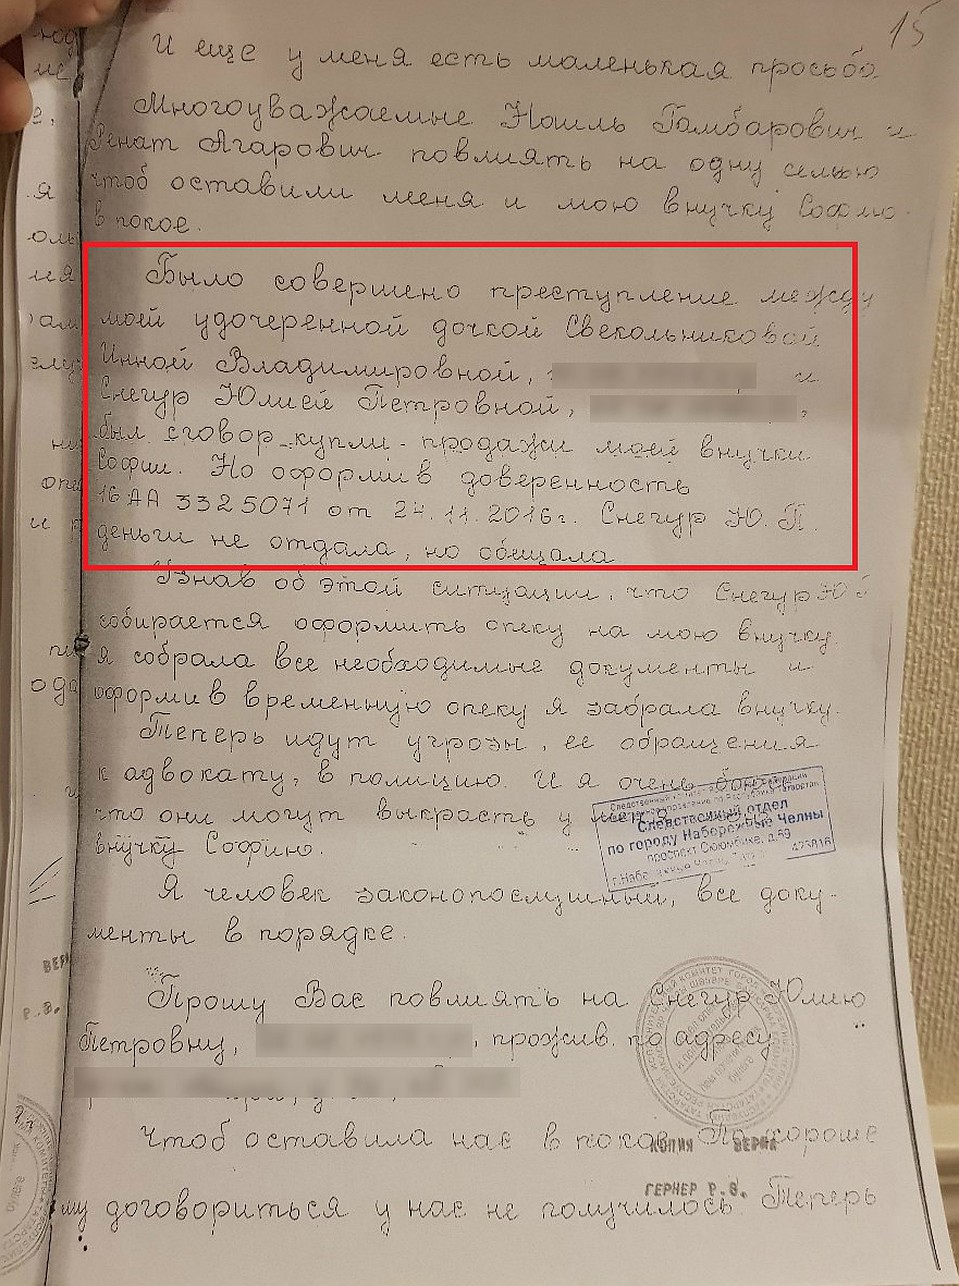 15
И еще у меня есть маленькая просьба
Многоуважаемые Наиль Гамбарович и
Ренат Агарович повлиять на одну семью
чтоб оставили меня и мою внучку Софию
в покое.
Было совершено преступление между
моей удочеренной дочкой Свекольниковой
Инной Владимировной, и
Снегур Юлией Петровной,
был сговор купли-продажи моей внучки
Софии. Но оформив доверенность
16 АА 3325071 от 24.11.2016г. Снегур Ю.П.
деньги не отдала, но обещала
Узнав об этой ситуации, что Снегур Ю.П
собирается оформить опеку на мою внучку.
я собрала все необходимые документы и
оформив временную опеку я забрала внучку.
Теперь идут угрозы, ее обращения
к адвокату, в полицию. И я очень боюсь
что они могут выкрасть у меня
внучку Софию.
Следственный отдел
по городу Набережные Челны
проспект Сююмбике, д.69
423816
Я человек законопослушный, все доку-
менты в порядке.
Прошу Вас повлиять на Снегур Юлию
Петровну, , прожив. по адресу
Чтоб оставила нас в покое. По хороше
КОПИЯ ВЕРНА
ГЕРНЕР Р.В.
му договориться у нас не получилось. Теперь